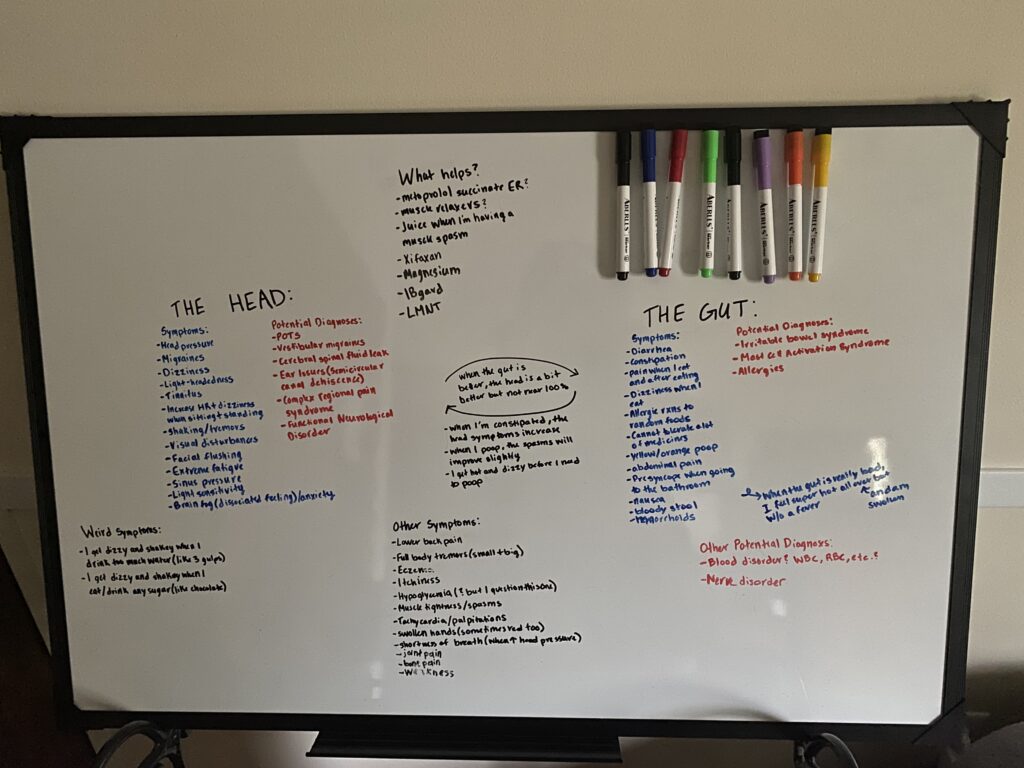 What helps?
-metoprolol succinate ER?
-muscle relaxers?
-Juice when I'm having a
muscle spasm
-Xifaxan
-Magnesium
-IBgard
-LMNT
THE HEAD:
Symptoms:
-Head pressure
-Migraines
-Dizziness
-Light-headedness
-Tinnitus
-Increase HR+dizziness
when sitting+standing
-shaking/tremors
-Visual disturbances
-Facial flushing
-Extreme fatigue
-Sinus pressure
-Light sensitivity
-Brain fog(disociated feeling)/anxiety
Potential Diagnoses:
-POTS
-Vestibular migraines
-Cerebral spinal fluid leak
-Ear Issues(Semicircular
canal dehiscence)
-Complex regional pain
syndrome
-Functional Neurological
Disorder
when the gut is
better, the head is a bit
better but not near 100%
-when I'm constipated, the
head symptoms increase
-when I poop, the spasms will
improve slightly
-I get hot and dizzy before I need
to poop
THE GUT:
Symptoms:
-Diarrhea
-Constipation
-pain when I eat
and after eating
-Dizziness when I
eat
-Allergic rxns to
random foods
-Cannot tolerate a lot
of medicines
-yellow/orange poop
-abdominal pain
-Presyncope when going
to the bathroom
-nausea
-bloody stool
-Hemorrhoids
Potential Diagnoses:
-Irritable bowel syndrome
-Mast Cell Activation Syndrome
-Allergies
when the gut is really bad,
I feel super hot all over but
w/o a fever
swollen
Weird Symptoms:
-I get dizzy and shakey when I
drink too much water(like 3 gulps)
-I get dizzy and shakey when I
eat/drink any sugar(like chocolate)
Other Symptoms:
-Lower back pain
-Full body tremors(small+big)
-Eczema
-Itchiness
-Hypoglycemia(? but I question this one)
-Muscle tightness/spasms
-Tachycardia/palpitations
-swollen hands(sometimes red too)
-shortness of breath(when ↑ head pressure)
-joint pain
-bone pain
-Weakness
Other Potential Diagnoses:
-Blood disorder? WBC, RBC, etc.?
-Nerve disorder
ABERLLS
ABERLLS
ABERLLS
ABERLLS
ABERLLS
ABERLLS